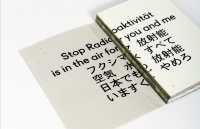 Stop Radioaktivität
is in the air for you and me
フクシマ 放射能
空気 水 すべて
日本でも 放射能
いますぐ やめろ